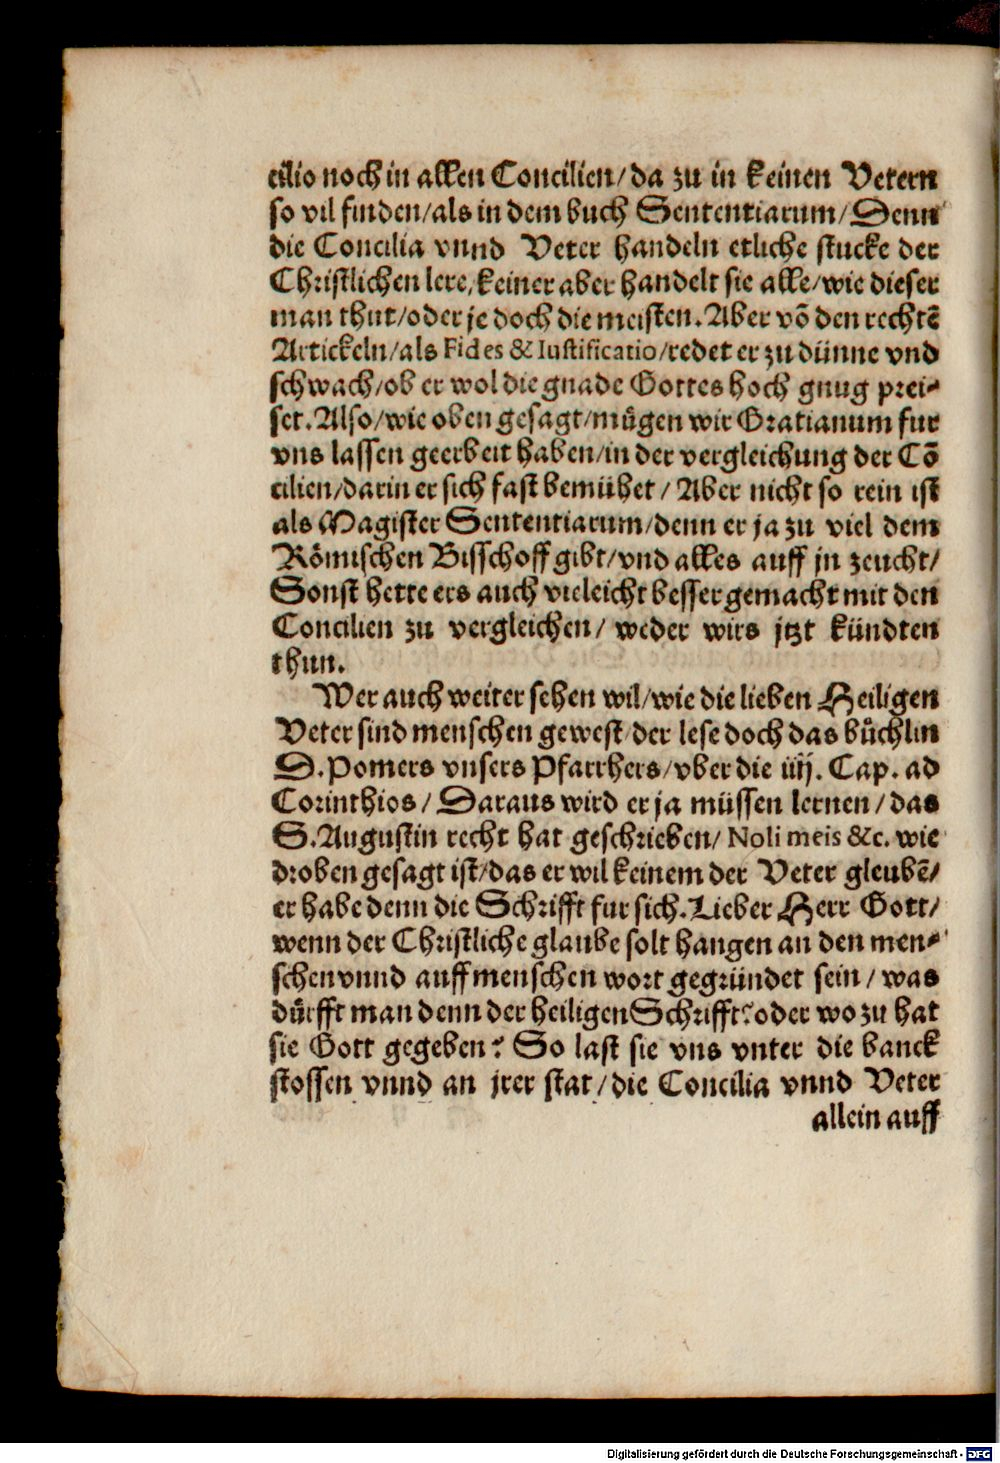 cilio noch in allen Concilien/da zu in keinen Vetern
so vil finden/als in dem buch Sententiarum/Denn
die Concilia vnnd Veter handeln etliche stucke der
Christlichen lere/keiner aber handelt sie alle/wie dieser
man thut/oder je doch die meisten.Aber võ den rechtẽ
Artickeln/als Fides & Iustificatio/redet er zu dünne vnd
schwach/ob er wol die gnade Gottes hoch gnug prei-
set.Also/wie oben gesagt/mügen wir Gratianum fur
vns lassen geerbeit haben/in der vergleichung der Cõ
cilien/darin er sich fast bemühet/Aber nicht so rein ist
als Magister Sententiarum/denn er ja zu viel dem
Römischen Bisschoff gibt/vnd alles auff jn zeucht/
Sonst hette ers auch vieleicht besser gemacht mit den
Concilien zu vergleichen/ weder wirs jtzt kündten
thun.
Wer auch weiter sehen wil/wie die lieben Heiligen
Veter sind menschen gewest/der lese doch das büchlin
D.Pomers vnsers Pfarrhers/vber die iiij. Cap. ad
Corinthios/ Daraus wird er ja müssen lernen/das
S.Augustin recht hat geschrieben/ Noli meis &c. wie
droben gesagt ist/das er wil keinem der Veter gleubẽ/
er habe denn die Schrifft fur sich.Lieber Herr Gott/
wenn der Christliche glaube solt hangen an den men-
schen vnnd auff menschen wort gegründet sein/ was
dürfft man denn der heiligen Schrifft? oder wo zu hat
sie Gott gegeben? So last sie vns vnter die banck
stossen vnnd an jrer stat/die Concilia vnnd Veter
allein auff
Digitalisierung gefördert durch die Deutsche Forschungsgemeinschaft - DFG